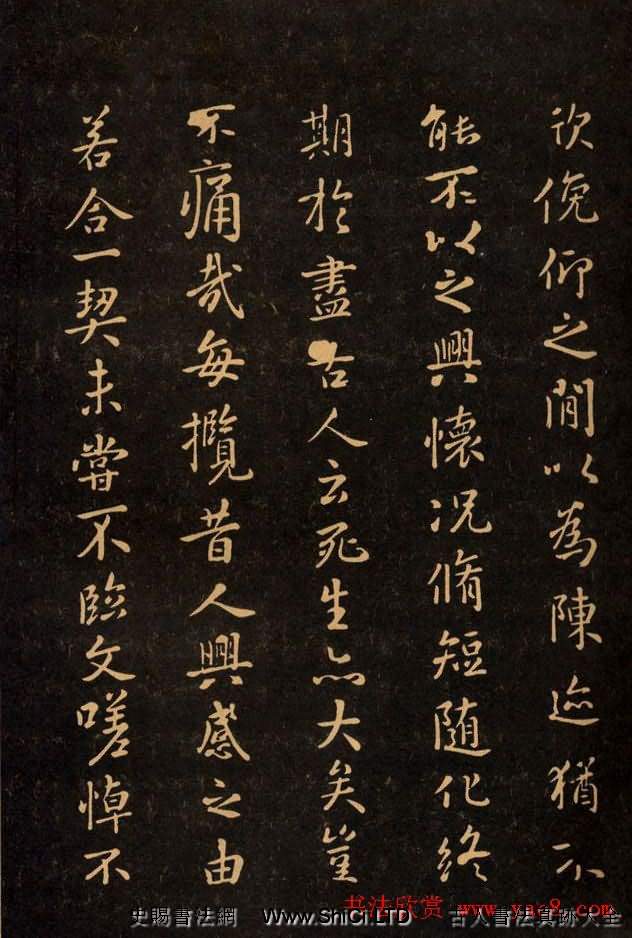 欣俛仰之間以為陳迹猶不
能不以之興懷况脩短随化終
期於盡古人云死生亦大矣豈
不痛哉每攬昔人興感之由
若合一契未嘗不臨文嗟悼不
书法欣赏 www.yac8.com
史賜書法網 Www.ShiCi.LTD 古人書法真跡大全